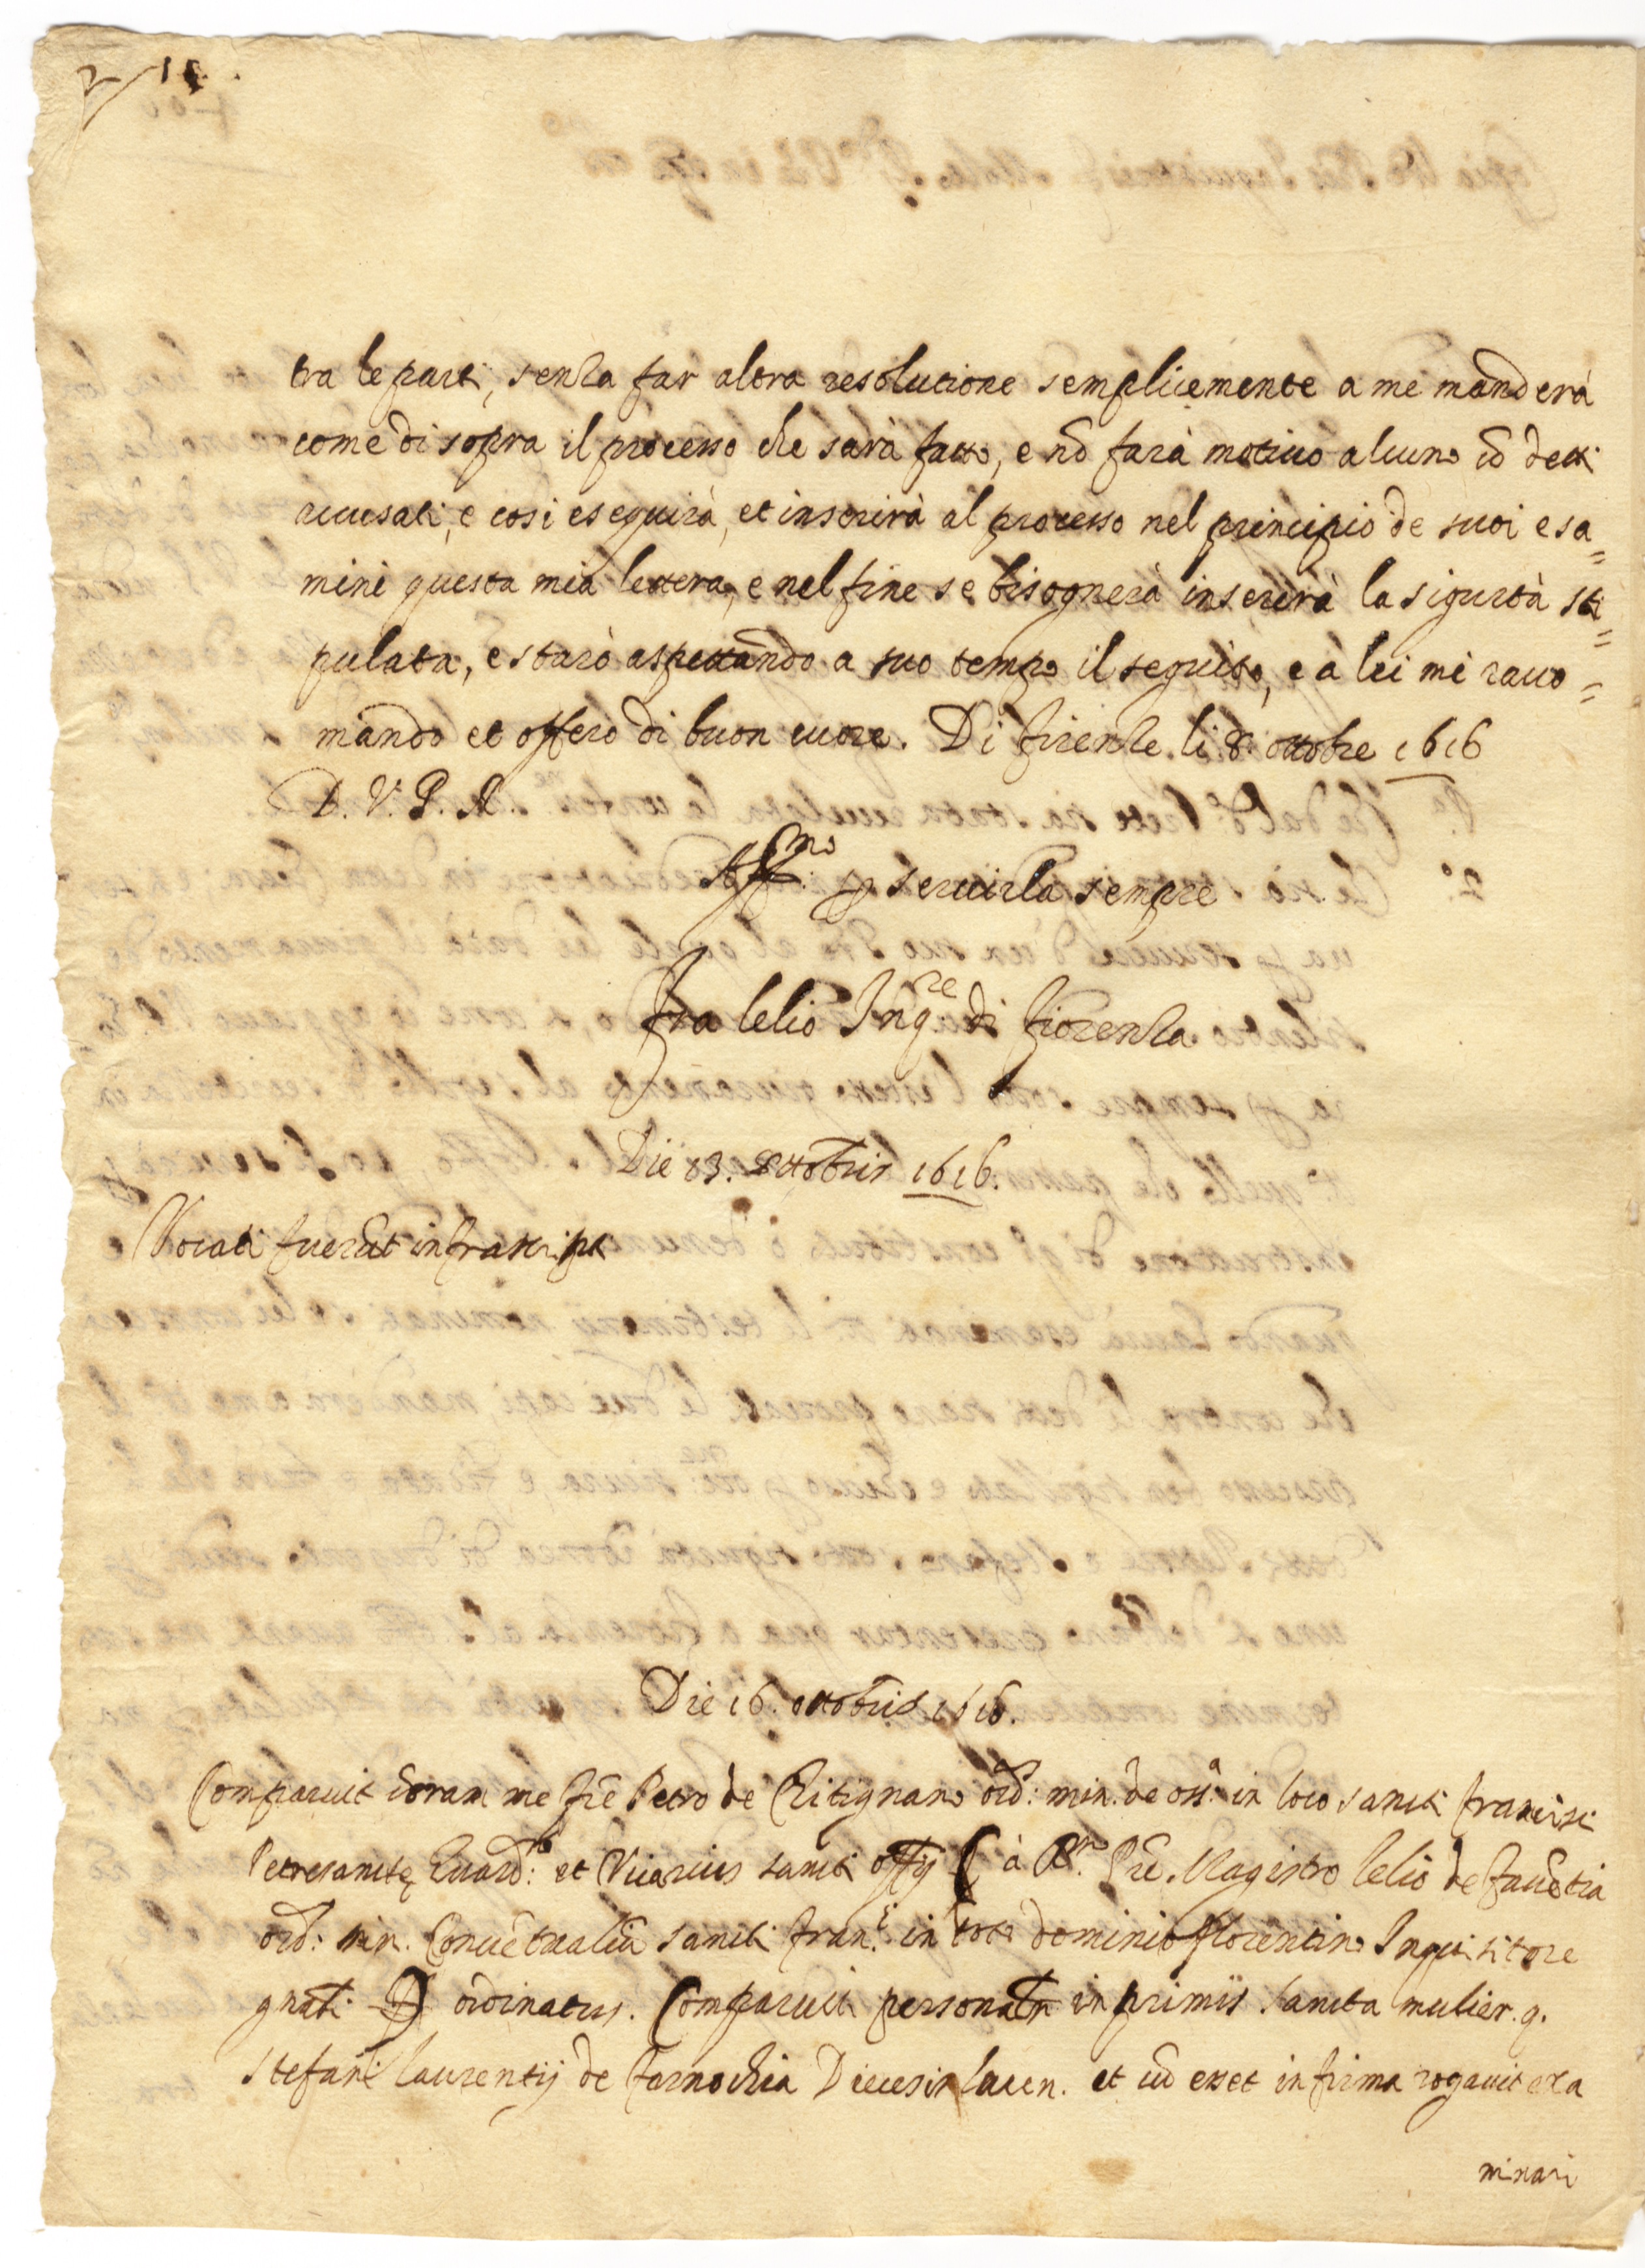 tra le parti, senza far altra resolutione semplicemente a me manderà
come di sopra il processo che sarà fatto, e nõ farà motivo alcuno cõ detti
accusati, e cosi eseguirà, et inserirà al processo nel principio de suoi esa=
mini questa mia lettera, e nel fine se bisognerà inserirà la sigurtà sti=
pulata, e starò aspettando a suo tempo il seguito, e à lei mi racco=
mando et offero di buon cuore. Di firenze li 8. ottobre 1616
D. V. P. R.
Aff.mo p servirla sempre
fra lelio Inq.re di fiorenza
Die 13. ottobris 1616.
Vocati fuerũt infrascripti
Die 16. ottobris 1616.
Comparuit coram me fr̃e Petro de Chitignano ord: min. de oss.a in loco sancti francisci
Petresancte Guard: et Vicarius sancti offij ( à R. Pr̃e. Magistro lelio de favẽtia
ord: min. Convẽtualiũ sancti fran.ci in toto dominio florentino Inquisitore
gnãli ) ordinatus. Comparuit personalr̃ in primis sancta mulier. q.
stefani laurentij de farnochia Diecesis lucen. et cũ esset infirma rogavit exa
minari